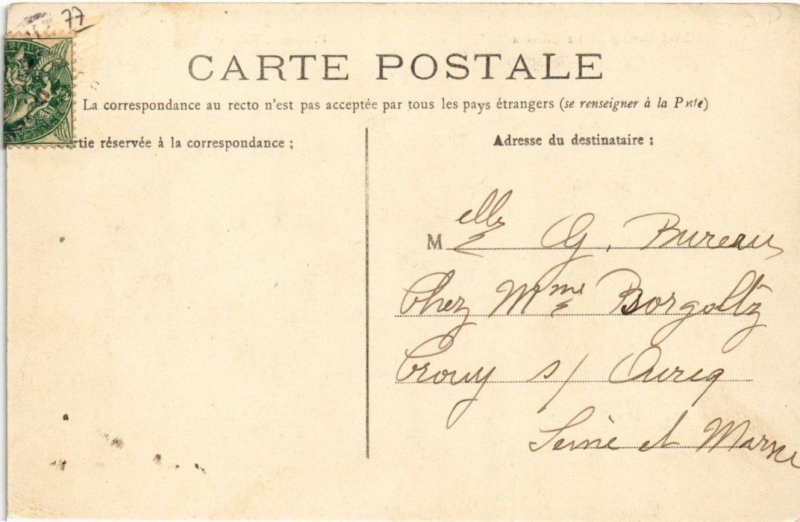 77
CARTE POSTALE
La correspondance au recto n'est pas acceptée par tous les pays étrangers (se renseigner à la Poste)
rtie réservée à la correspondance ;
Adresse du destinataire :
Melle G. Bureau
Chez Mme Borgoltz
Crouy s/ Ourcq
Seine et Marne